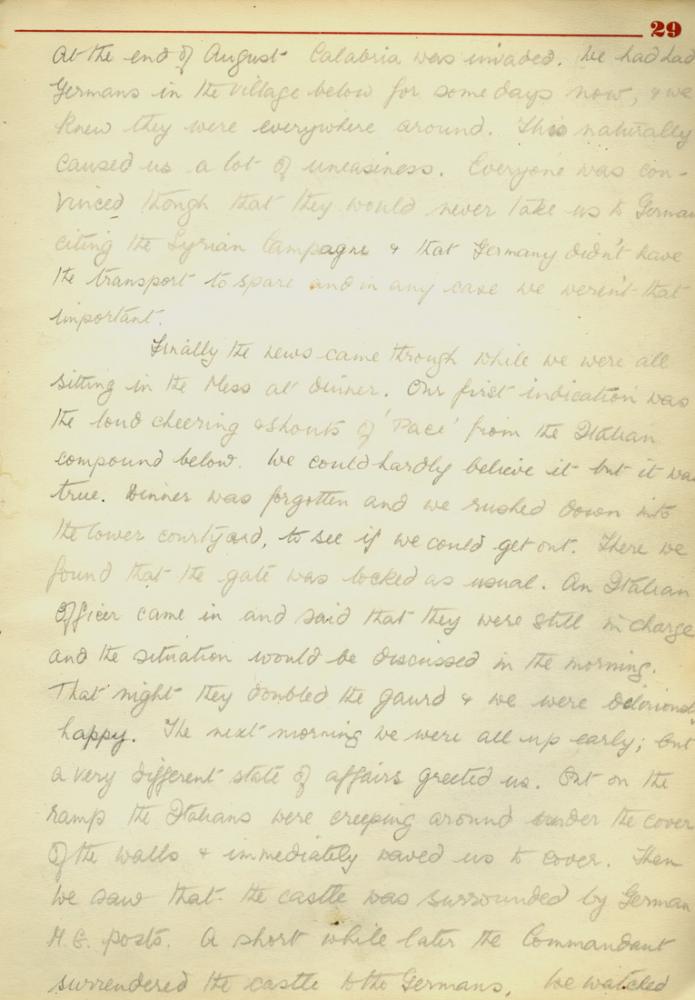 29
At the end of August Calabria was invaded. We had had
Germans in the village below for some days now, & we
knew they were everywhere around. This naturally
caused us a lot of uneasiness. Everyone was con-
vinced though that they would never take us to German
citing the Syrian Campagne & that Germany didn't have
the transport to spare and in any case we weren't that
important.
Finally the news came through while we were all
sitting in the Mess at dinner. Our first indication was
the loud cheering & shouts of 'Pace' from the Italian
compound below. We could hardly believe it but it was
true. Dinner was forgotten and we rushed down into
the lower courtyard, to see if we could get out. There we
found that the gate was locked as usual. An Italian
Officer came in and said that they were still in charge
and the situation would be discussed in the morning.
That night they doubled the gaurd & we were deliriousl
happy. The next morning we were all up early; but
a very different state of affairs greeted us. Out on the
ramp the Italians were creeping around under the cover
of the walls & immediately waved us to cover. Then
we saw that the castle was surrounded by German
M.G. posts. A short while later the Commandant
surrendered the castle to the Germans. We watched